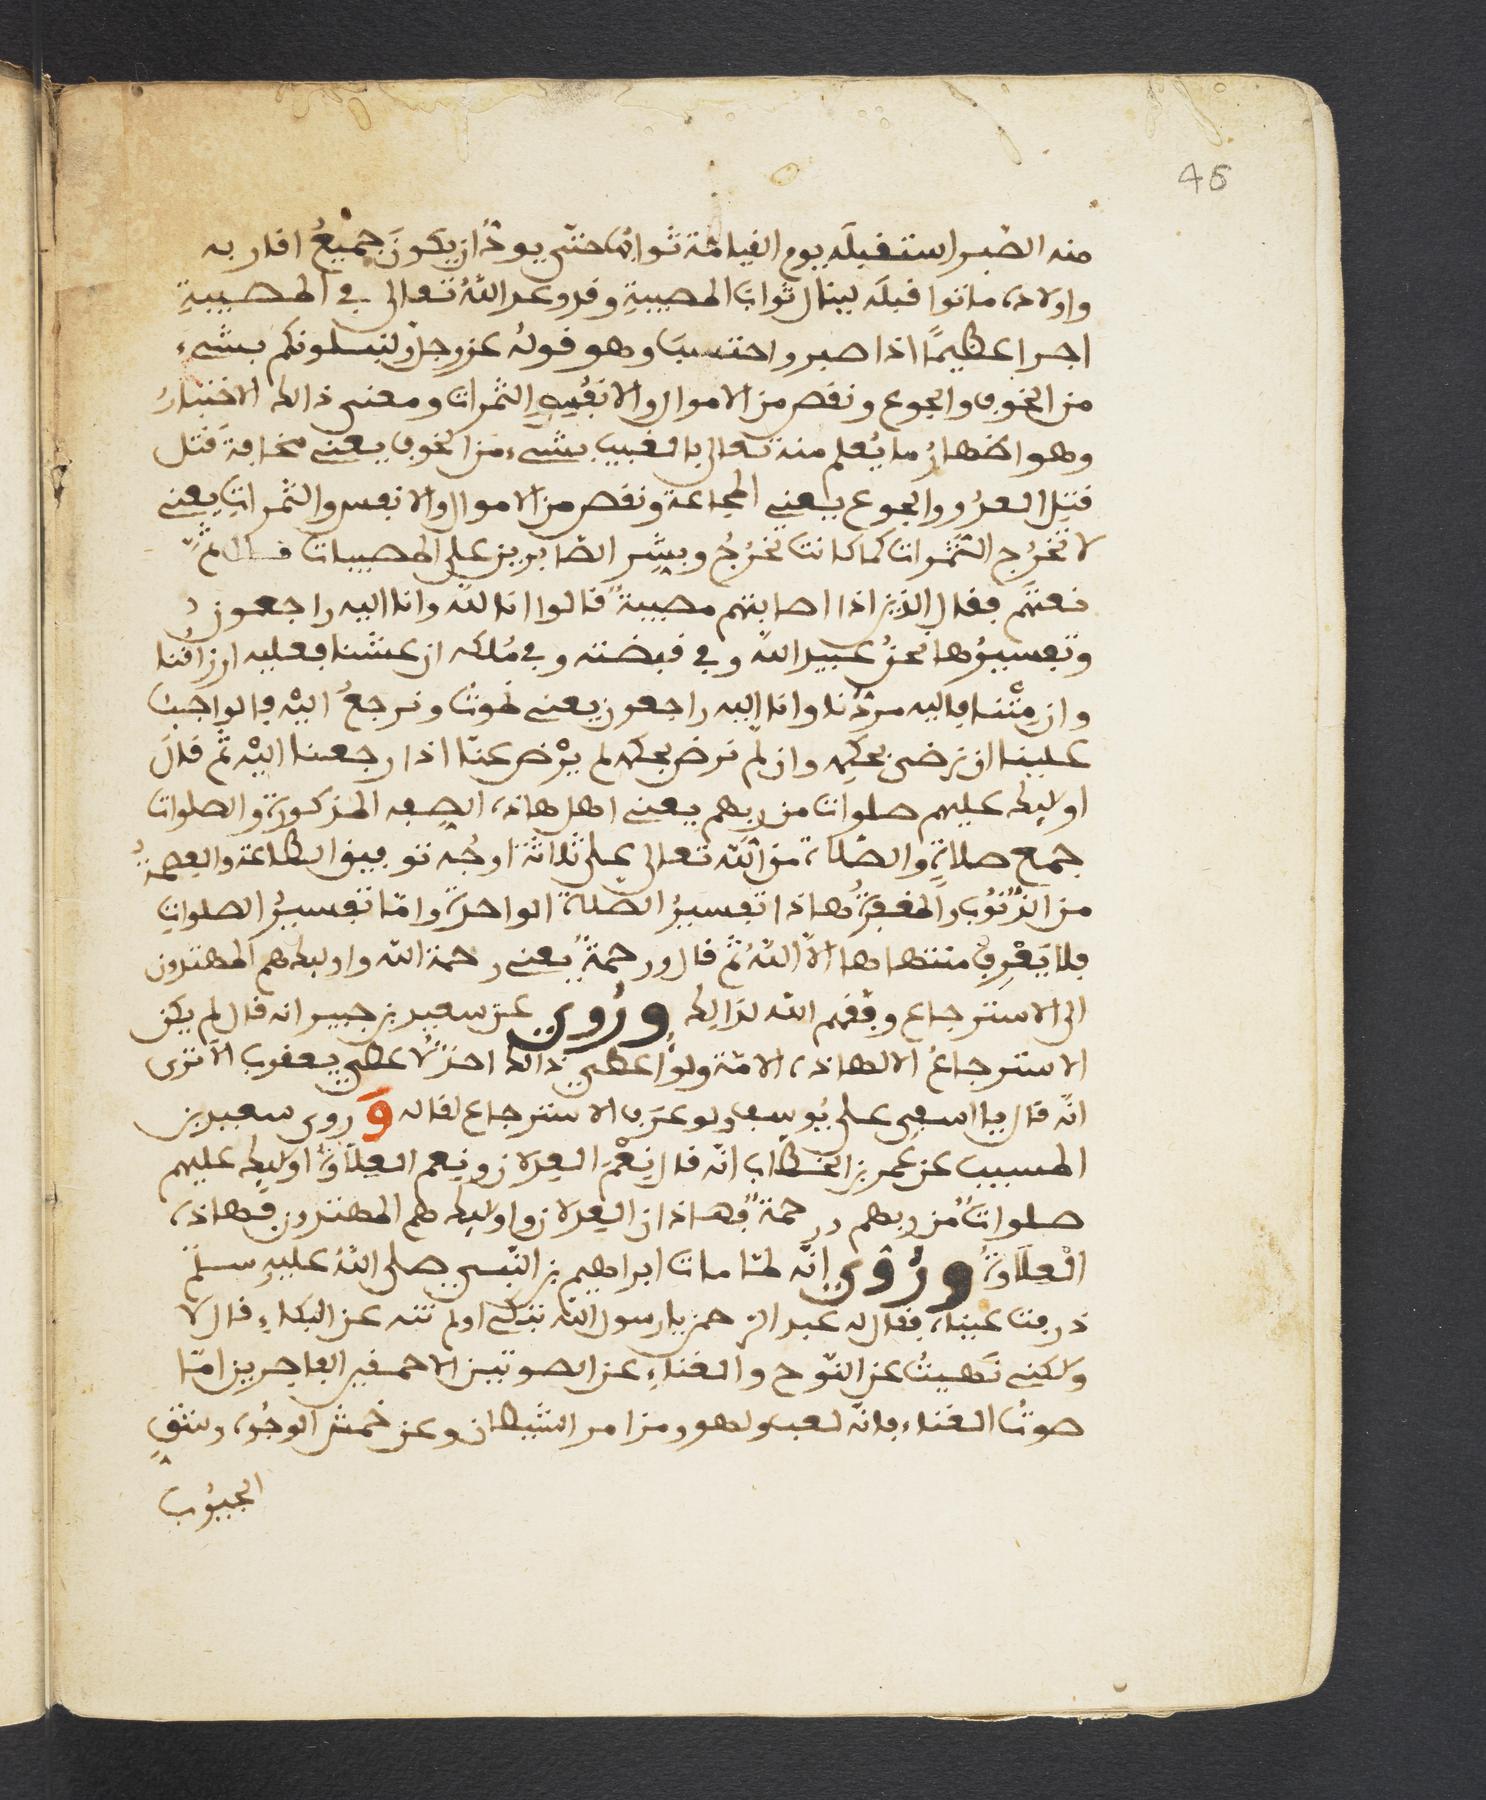 45
منه الصّبر استقبلَه يوم القيامة ثوابها حتى يودّ ان يكونَ جميعُ اقاربه
واولاده ماتوا قبلَه لينال ثواب المصيبةِ وقد وعد اللهُ تعالى في المصيبةِ
اجرا عظيمًا اذا صبر واحتسبَ وهو قولُه عز وجل ولنبلونكم بشىء
من الخوف والجوع ونقص من الاموال والانفُسِ والثمرات ومعنى ذالك الاختبارُ
وهو اظهارُ ما يُعلم منه تعالى بالغيب بشىء من الخوف يعني مخافة قتل
قتل العدو والجوع يعني المجاعة ونقص من الاموال والانفس والثمراتِ يعني
لا تخرُج الثّمرات كما كانت تخرُجُ وبشِّر الصّابرين على المصيبات ثمّ
نعتهم فقال الذين اذا اصابتهم مصيبةٌ قالوا انا لله وانا اليه راجعون
وتفسيرُها نحنُ عبيد الله وفي قبضته وفي مُلكه ان عشنا فعليه ارزاقُنا
وان مِتْنا فاليه مردّنا وانا اليه راجعون يعني نموتُ ونرجعُ اليْه فالواجبُ
علينا ان نرضى بحكمِه وان لم نرض بحكمه لم يرْض عنّا اذا رجعنا اليْه ثمّ قالَ
اوليك عليهم صلوات من ربهم يعني اهل هاذه الصِفه المذكورة والصلوات
جمع صلاةٍ والصّلاة من الله تعالى على ثلاثة اوجُه توفيق الطاعة والعصمةُ
من الذُنُوب والمغفرةُ هاذا تفسيرُ الصّلاة الواحدة وامّا تفسيرُ الصلوات
فلا يَعْرِفُ منتهاها الاّ اللهُ ثمّ قال ورحمةٌ يعني رحمة الله واوليك هم المهتدون
الى الاسترجاع وفقهم الله لذالِك ورُوي عن سعيد بن جبير انه قال لم يكن
الاسترجاعُ الا لهاذه الامّة ولوْ اعطي ذالك احدٌ لاعطي يعقوب الا ترى
انّه قال يا اسفى على يُوسف ولو عرَف الاسترجاع لقاله وَروى سعيد بن
المسيب عن عُمر بن الخطّاب انّه قال نِعْمَ العِدلان ونِعم العِلاَوَة اوليك عليهم
صلواتٌ من ربهم ورحمةٌ فهاذان العِدلان واوليك هم المهتدون فهاذه
الْعلاَوةُ ورُوي انّه لمّا مات ابراهيم بن النّبي صلى اللهُ عليهِ وسلّمَ
ذرفت عيناه فقال له عبد الرّحمن يا رسول الله تبكي اولم تنه عن البكاءِ قال لا
ولاكني نَهيتُ عن النّوح والغناءِ عن الصوتين الاحمقين الفاجرين امّا
صوتُ الغناء فانّه لعب ولهو ومزامر الشيطان وعن خمش الوجُوه وشقِ
الجيُوب